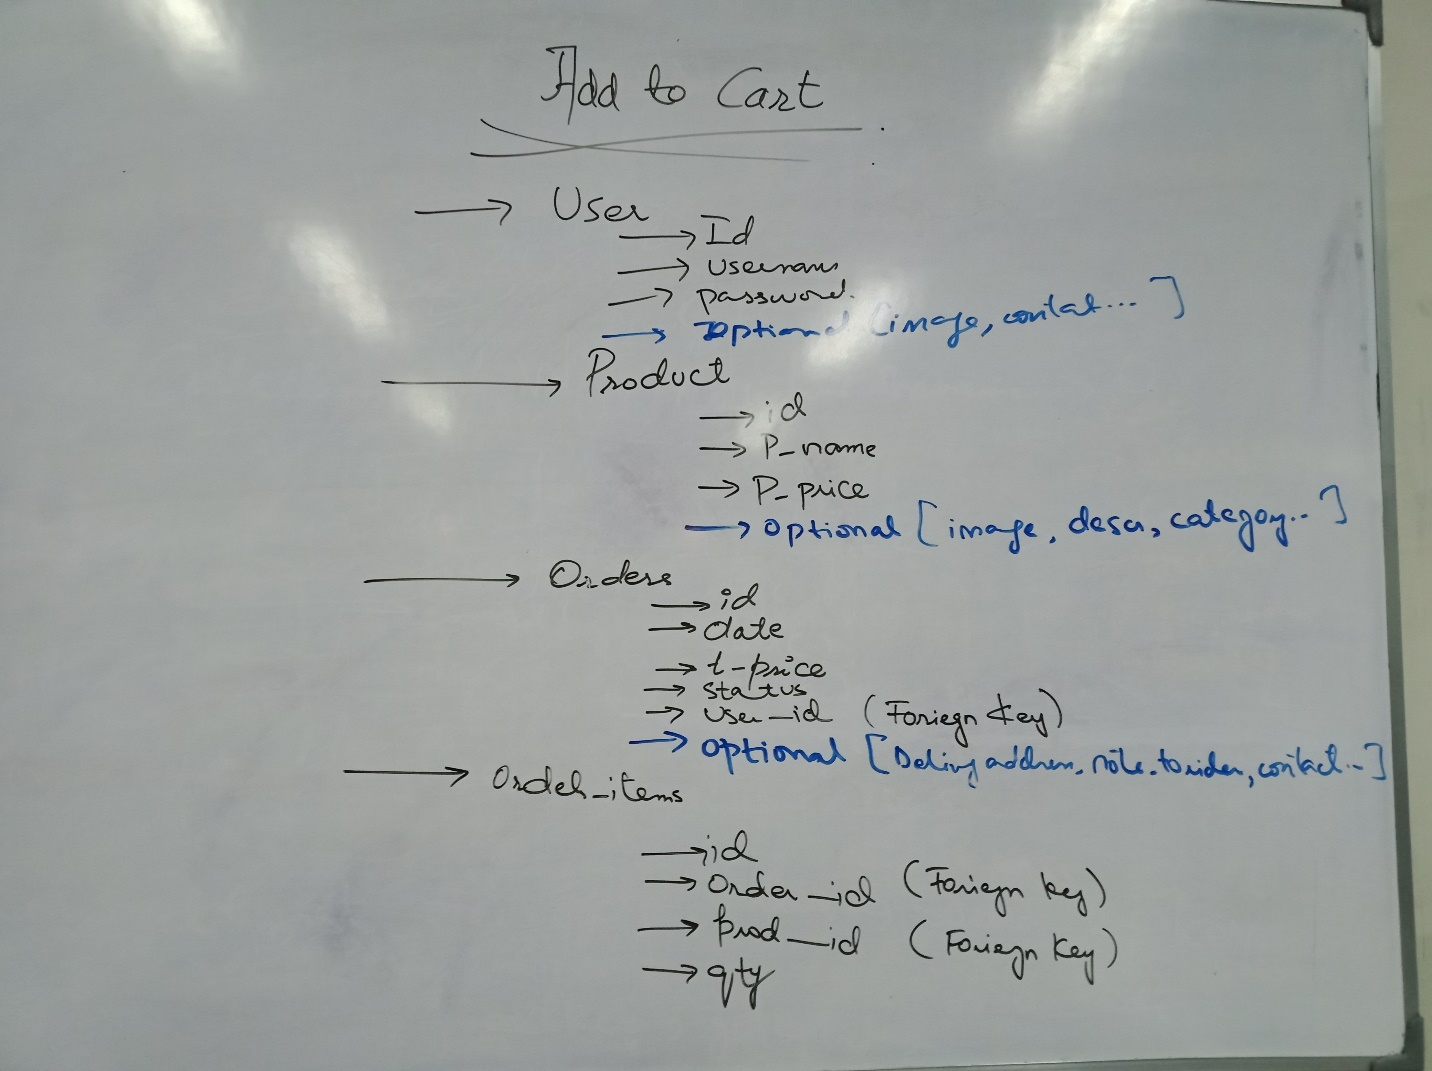 Add to Cart
→ User
→ Id
→ username
→ password.
→ Optional [image, contact... ]
→ Product
→ id
→ P_name
→ P_price
→ optional [image, descr, category.. ]
→ Orders
→ id
→ date
→ t-price
→ status
→ user_id (Foriegn key)
→ optional [Delivry address, note.to rider, contact..]
→ Order_items
→ id
→ Order_id (Foriegn key)
→ prod_id (Foriegn key)
→ qty